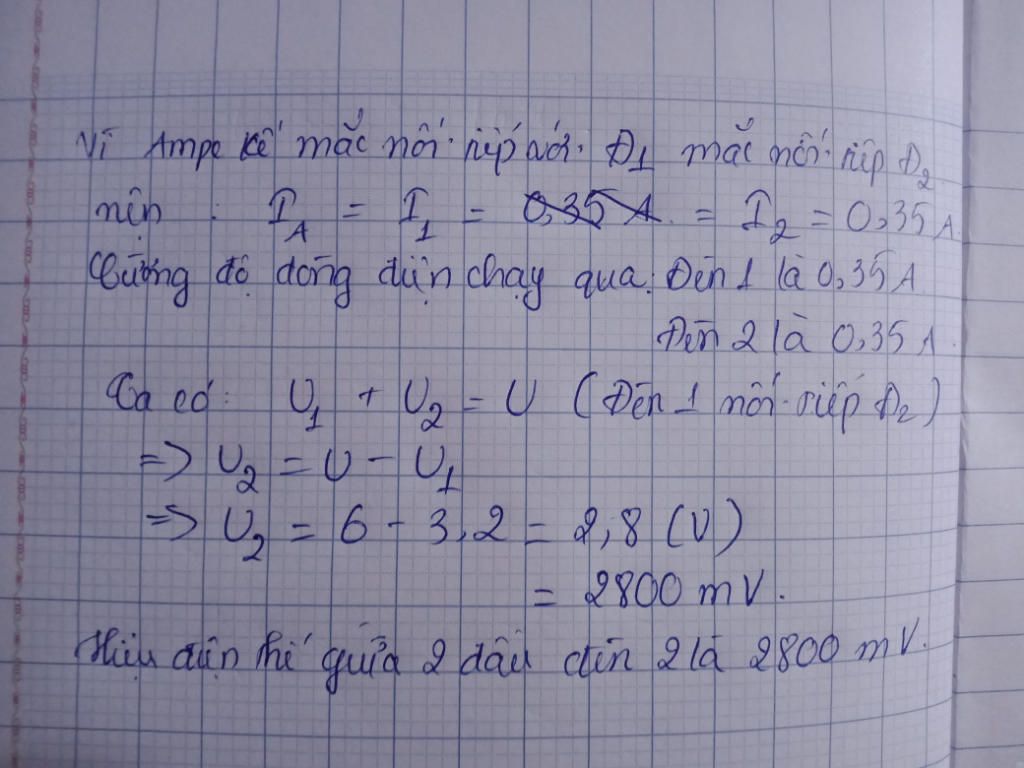 Vì Ampe kế mắc nối tiếp với Đ1 mắc nối tiếp Đ2
nên : I_A = I_1 = 0,35 A = I_2 = 0,35 A.
Cường độ dòng điện chạy qua: Đèn 1 là 0,35 A
Đèn 2 là 0,35 A.
Ta có: U_1 + U_2 = U (Đèn 1 nối tiếp Đ2)
=> U_2 = U - U_1
=> U_2 = 6 - 3,2 = 2,8 (V)
= 2800 mV.
Hiệu điện thế giữa 2 đầu đèn 2 là 2800 mV.